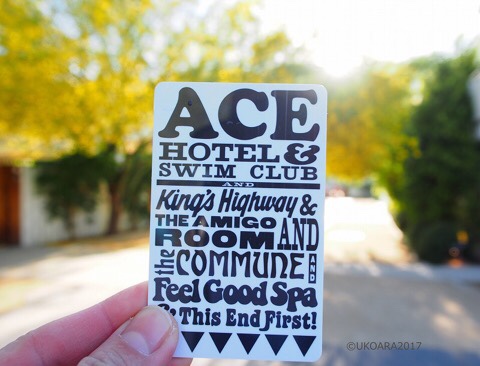 ACE
HOTEL &
SWIM CLUB
AND
King's Highway &
THE AMIGO
ROOM AND
the COMMUNE AND
Feel Good Spa
& This End First!
©UKOARA2017